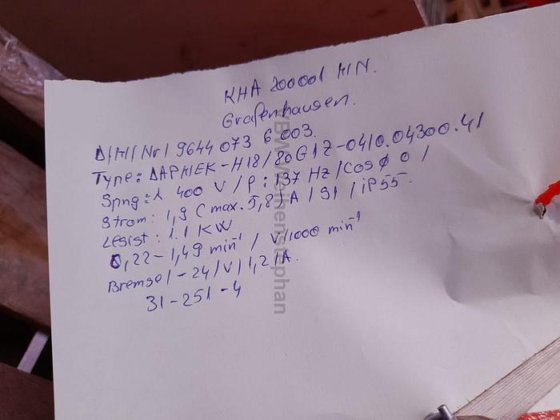 KHA 20000l HIN.
Grafenhausen.
D/H/ Nr / 9644 073 6 003.
Type: DAPHIEK-H18/80G1Z-0410.04300.4/
Spng: λ 400 V / P: 137 Hz / Cos φ 0 /
Strom: 1,9 C max. 5,8 A / S1 / iP55.
Lesist: 1.1 KW
0,22-1,49 min⁻¹ / V/1000 min⁻¹
Bremse / -24/V/1,2/A.
31-251-4